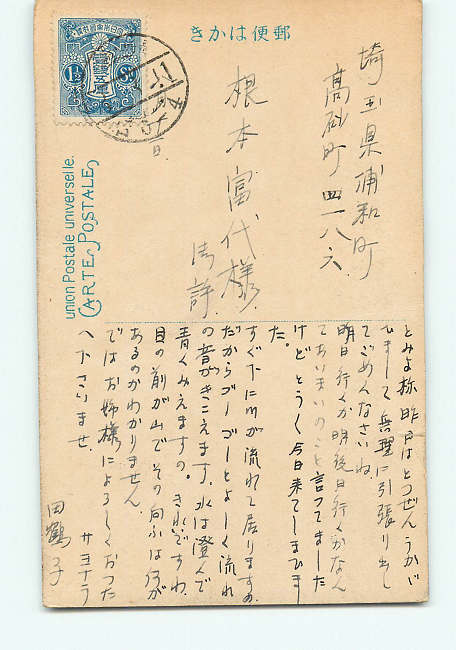 きかは便郵
union Postale universelle.
CARTE POSTALE
1½ SN
埼玉県浦和町
高砂町四一八六
根本富代様
とみよ様昨日はとつぜんうかゞ
ひまして無理に引張り出し
てごめんなさいね
明日行くか明後日行くかなん
てあいまいのこと言つてました
けどとう〳〵今日来てしまひま
した。
すぐ下に川が流れて居りますの
だからゴーゴーとよーく流れ
の音がきこえます、水は澄んで
青くみえますの。きれいですわ
目の前が山でその向ふは何が
あるのかわかりません。
ではお姉様によろしくおつた
へ下さいませ。
サヨナラ
田鶴子